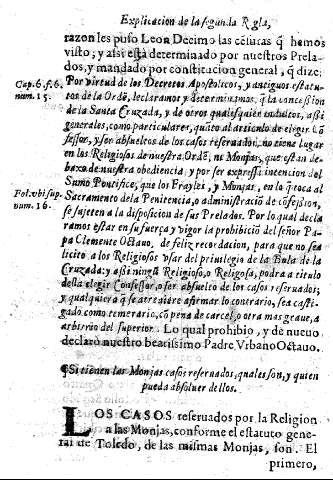 Explicacion de la segunda Regla,
razon les puso Leon Decimo las cēsuras q̃ hemos
visto; y assi està determinado por nuestros Prela-
dos, y mandado por constitucion general, q̃ dize:
Cap. 6. f. 6.
num. 15.
Por virtud de los Decretos Apostolicos, y antiguos estatu-
tos de la Ordē, declaramos y determinamos, q̃ la concessiō
de la Santa Cruzada, y de otros qualesquier indultos, assi
generales, como particulares, quāto al articulo de elegir Cō
fessor, y ser absueltos de los casos reseruados, no tiene lugar
en los Religiosos de nuestra Ordē, ni Monjas, que estan de-
baxo de nuestra obediencia, y por ser expressa intencion del
Sumo Pontifice, que los Frayles, y Monjas, en lo q̃ toca al
Fol. vbi sup.
num. 16.
Sacramento dela Penitencia, o administraciō de cōfession,
se sujeten a la disposicion de sus Prelados. Por lo qual decla
ramos estar en su fuerça y vigor la prohibiciō del señor Pa-
pa Clemente Octauo, de felize recordacion, para que no sea
licito a los Religiosos vsar del priuilegio de la Bula de la
Cruzada: y assi ningū Religioso, o Religiosa, podra a titulo
della elegir Confessor, o ser absuelto de los casos reseruados;
y qualquiera q̃ se atreuiere afirmar lo contrario, sea casti-
gado como temerario, cō pena de carcel, o otra mas graue, a
arbitrio del superior. Lo qual prohibio, y de nueuo
declarò nuestro beatissimo Padre Vrbano Octauo.
¶Si tienen las Monjas casos reseruados, quales son, y quien
pueda absoluer dellos.
LOS CASOS reseruados por la Religion
a las Monjas, conforme el estatuto gene-
ral de Toledo, de las mismas Monjas, son. El
primero,